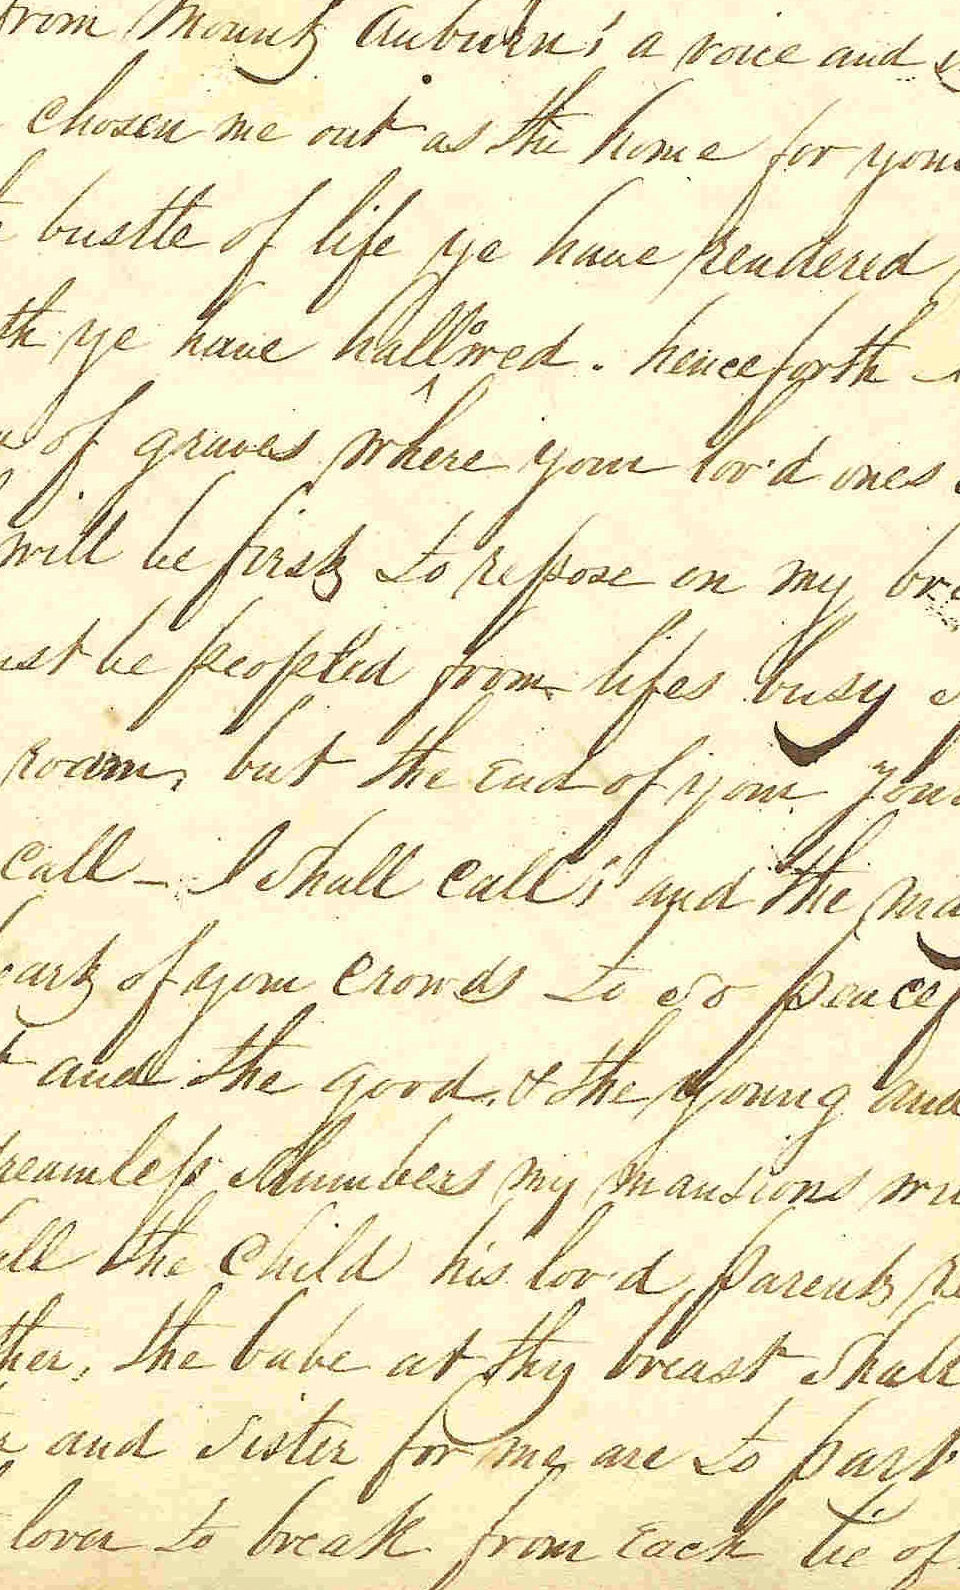 from Mount Auburn's a voice and
chosen me out as the home for your
bustle of life ye have rendered
ye have hallowed. henceforth -
of graves where your lov'd ones
will be first to repose on my
be peopled from lifes busy
roam, but the end of your
call - I shall call, and the
of your crowds to do
and the good. & the young and
dreamless slumbers my mansions
the child his lov'd parents
the babe at thy breast shall
and sister for me are to part
lover to break from each tie of